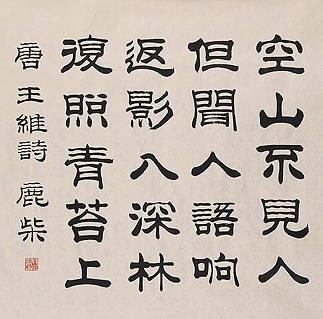 空山不見人
但聞人語响
返影入深林
復照青苔上
唐王維詩鹿柴